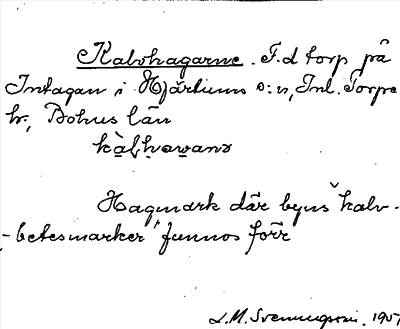 Kalvhagarne. F.d torp på
Intagan i Hjärtums s:n, Inl. Torpe
hr, Bohus län
Hagmark där byns kalv-
-betesmarker funnos förr
L.M. Svenungsson. 1907